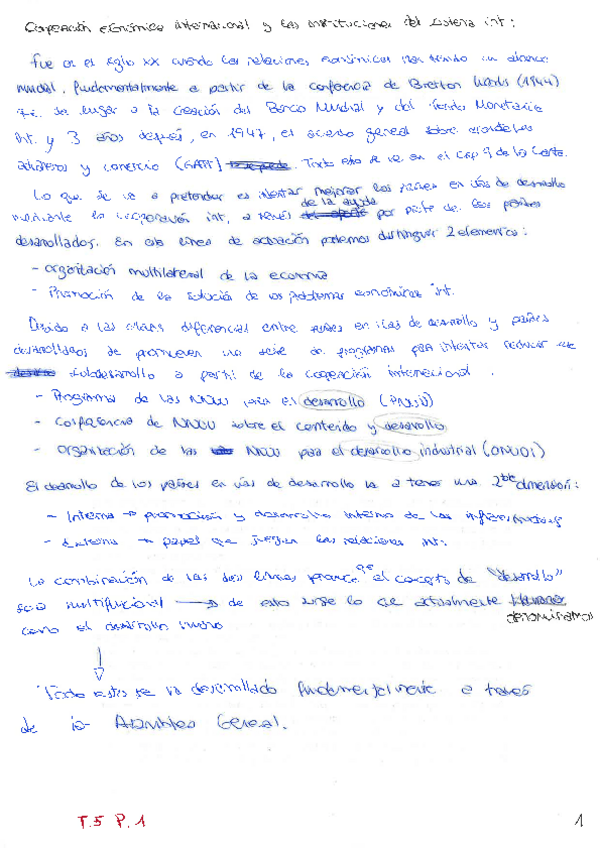 Cooperación económica internacional y las instituciones del sistema int:
Fue en el siglo XX cuando las relaciones económicas han tenido un alcance
mundial, fundamentalmente a partir de la conferencia de Bretton Woods (1944)
se lugar a la creación del Banco Mundial y del Fondo Monetario
Int. y 3 años después, en 1947, el acuerdo general sobre aranceles
aduaneros y comercio (GATT). Todo esto se ve en el cap 9 de la Carta.
Lo que se va a pretender es intentar mejorar los países en vías de desarrollo
mediante la cooperación int, a través de la ayuda por parte de los países
desarrollados. En esta línea de actuación podemos distinguir 2 elementos:
- organización multilateral de la economía
- Promoción de la solución de los problemas económicos int.
Debido a las claras diferencias entre países en vías de desarrollo y países
desarrollados se promueven una serie de programas para intentar reducir ese
subdesarrollo a partir de la cooperación internacional.
- Programa de las NNUU para el desarrollo (PNUD)
- Conferencia de NNUU sobre el contenido y desarrollo
- organización de las NNUU para el desarrollo industrial (ONUDI)
El desarrollo de los países en vías de desarrollo va a tener una 2ble dimensión:
- Interna → promoción y desarrollo interno de las infraestructuras
- Externa → papel que juegan las relaciones int.
La combinación de las dos líneas provoca que el concepto de "desarrollo"
sea multifuncional → de esto surge lo que actualmente denominamos
como el desarrollo humano
Todo esto se ha desarrollado fundamentalmente a través
de la Asamblea General.
T.5 P.1
1